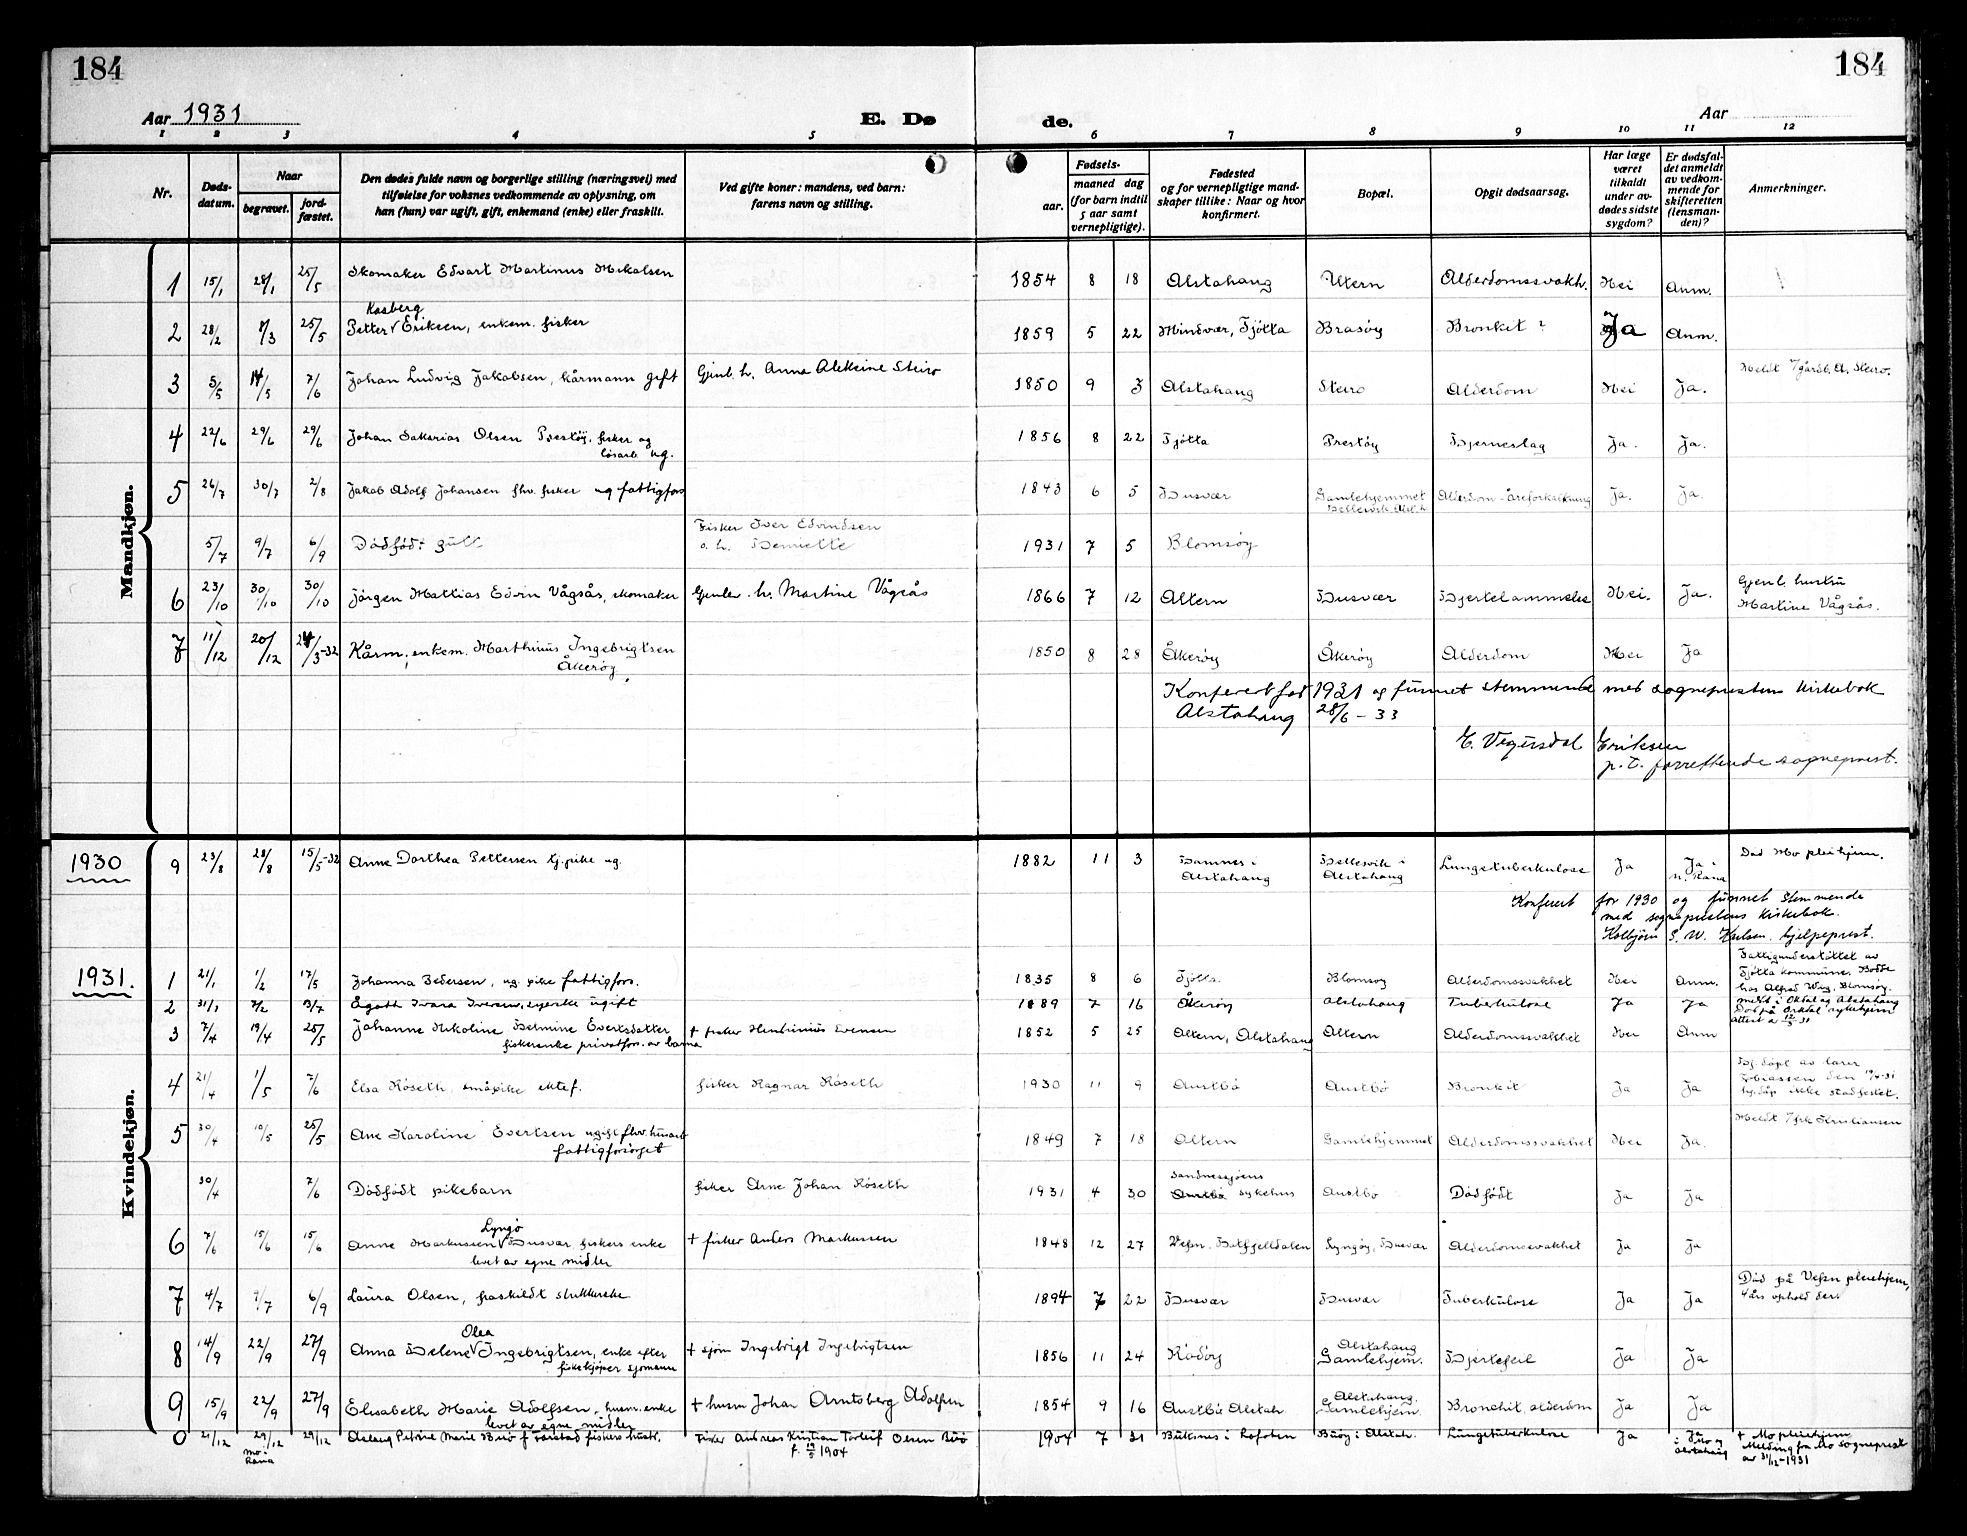 184
184
Aar 1931
E. Dø
de.
Aar
1 2 3 4 5 6 7 8 9 10 11 12
Nr.
Døds-
datum.
Naar
begravet.
jord-
fæstet.
Den dødes fulde navn og borgerlige stilling (næringsvei) med
tilføielse for voksnes vedkommende av oplysning, om
han (hun) var ugift, gift, enkemand (enke) eller fraskilt.
Ved gifte koner: mandens, ved barn:
farens navn og stilling.
Fødsels-
aar.
maaned dag
(for barn indtil
5 aar samt
vernepligtige).
Fødested
og for vernepligtige mand-
skaper tillike: Naar og hvor
konfirmert.
Bopæl.
Opgit dødsaarsag.
Har læge
været
tilkaldt
under av-
dødes sidste
sygdom?
Er dødsfal-
det anmeldt
av vedkom-
mende for
skifteretten
(lensman-
den)?
Anmerkninger.
Mandkjøn.
1 15/1 28/1 25/5 Skomaker Edvart Martinus Nikolsen 1854 8 18 Alstahaug Altern Alderdomssvakh. Nei Anm.
Kasberg
2 28/2 8/3 25/5 Petter Eriksen, enkem. fisker 1859 5 22 Mindvær, Tjötta Brasöy Bronkit ? Ja Anm.
3 5/5 14/5 7/6 Johan Ludvig Jakobsen, kårmann gift Gjenl. h. Anna Aleksine Steiro 1850 9 3 Alstahaug Steiro Alderdom Nei Ja. Meldt v/gårdb. A. Steiro.
4 22/6 29/6 29/6 Johan Sakarias Olsen Prestöy, fisker og
lösarb. ug. 1856 8 22 Tjötta Prestöy Hjerneslag Ja. Ja.
5 26/7 30/7 2/8 Jakob Adolf Johansen fhv. fisker ug fattigfors 1843 6 5 Husvær Gamlehjemmet
Hellesvik Alst.h Alderdom-åreforkalkning Ja. Ja.
5/7 9/7 6/9 Dödfödt gutt Fisker Iver Edvindsen
o. h. Henriette 1931 7 5 Blomsöy
6 23/10 30/10 30/10 Jörgen Mathias Edvin Vågsås, skomaker Gjenlev. h. Martine Vågsås 1866 7 12 Altern Husvær Hjertelammelse Nei. Ja. Gjenl. hustru
Martine Vågsås.
7 11/12 20/12 24/3-32 Kårm, enkem. Marthinus Ingebrigtsen
Åkeröy. 1850 8 28 Åkeröy Åkeröy Alderdom Nei Ja
Konferert for 1931 og funnet stemmende med sogneprestens kirkebok
Alstahaug 28/6 - 33
E. Vegusdal Eriksen
p. t. forrettende sogneprest.
Kvindekjøn.
1930
9 23/8 28/8 15/5-32 Anne Dorthea Pettersen tj.pike ug. 1882 11 3 Hamnes i
Alstahaug Hellesvik i
Alstahaug Lungetuberkulose Ja Ja i
N. Rana Död Mo pleiehjem.
Konferert for 1930 og funnet stemmende
med sogneprestens kirkebok.
Kolbjörn S. W. Karlsen. hjelpeprest.
1931.
1 21/1 1/2 17/5 Johanna Pedersen, ug. pike fattigfors. 1835 8 6 Tjötta. Blomsöy Alderdomssvakhet Nei Anm. Fattigunderstöttet av
Tjötta kommune. Bodde
hos Alfred Wiig, Blomsöy.
2 31/1 7/2 3/7 Ågoth Ivara Iversen, syerske ugift 1889 7 16 Åkeröy Alstahaug Tuberkulose Ja Ja meldt i Orkdal og Alstahaug
Död på Orkdal sykehjem
Attest a 12/5 31
3 7/4 19/4 25/5 Johanne Nikoline Helmine Evertsdatter
fiskerenke privatfors. av barna + fisker Henhinius Evensen 1852 5 25 Altern, Alstahaug Altern Alderdomssvakhet Nei Anm
4 21/4 1/5 7/6 Elsa Röseth småpike ektef. fisker Ragnar Röseth 1930 11 9 Austbö Austbö Bronkit Ja Ja Hj. döpt av lærer
Tobiassen den 19/4-31
hj. dåp ikke stadfestet.
5 30/4 10/5 25/5 Ane Karoline Evertsen ugift fhv. husarb
fattigforsörget 1849 7 18 Altern Gamlehjemmet Alderdomssvakhet Nei Ja. Meldt v/frk Kristiansen
30/4 7/6 Dödfödt pikebarn fisker Arne Johan Röseth 1931 4 30 Sandnessjöens
Austbö sykehus Austbö Dödfödt Ja Ja
Lyngö
6 7/6 15/6 15/6 Anne Markussen Husvær fiskers enke
levet av egne midler + fisker Anders Markussen 1848 12 27 Vefsn. Hatfjelldalen Lyngöy, Husvær Alderdomssvakhet Ja Ja
7 4/7 9/7 6/9 Laura Olsen, fraskildt strikkerske 1894 7 22 Husvær Husvær Tuberkulose Ja Ja Död på Vefsn pleiehjem,
4 års ophold der.
Olea
8 14/9 22/9 27/9 Anna Helene Ingebrigtsen, enke efter
fiskekjöper sjömann + sjöm Ingebrigt Ingebrigtsen 1856 11 24 Rödöy Alstahaug
Gamlehjem. Hjertefeil Ja Ja
9 15/9 22/9 27/9 Elisabeth Marie Adolfsen, husm.enke
levet av egne midler + husm Johan Arntsberg Adolfsen 1854 9 16 Austbö Alstah Alstahaug.
Gamlehjem. Bronchit, alderdom Ja Ja
0 21/12 29/12 29/12 Aslaug Petrine Marie Buö f. Farstad fiskers hustr. Fisker Andreas Kristian Torleif Olsen Buö
f. 19/5 1904 1904 7 31 Buksnes i Lofoten Buöy i Alstah. Lungetuberkulose Ja Ja
i Mo og
Alstahaug + Mo pleiehjem
Melding fra Mo sogneprest
av 31/12-1931
Mo i
Rana